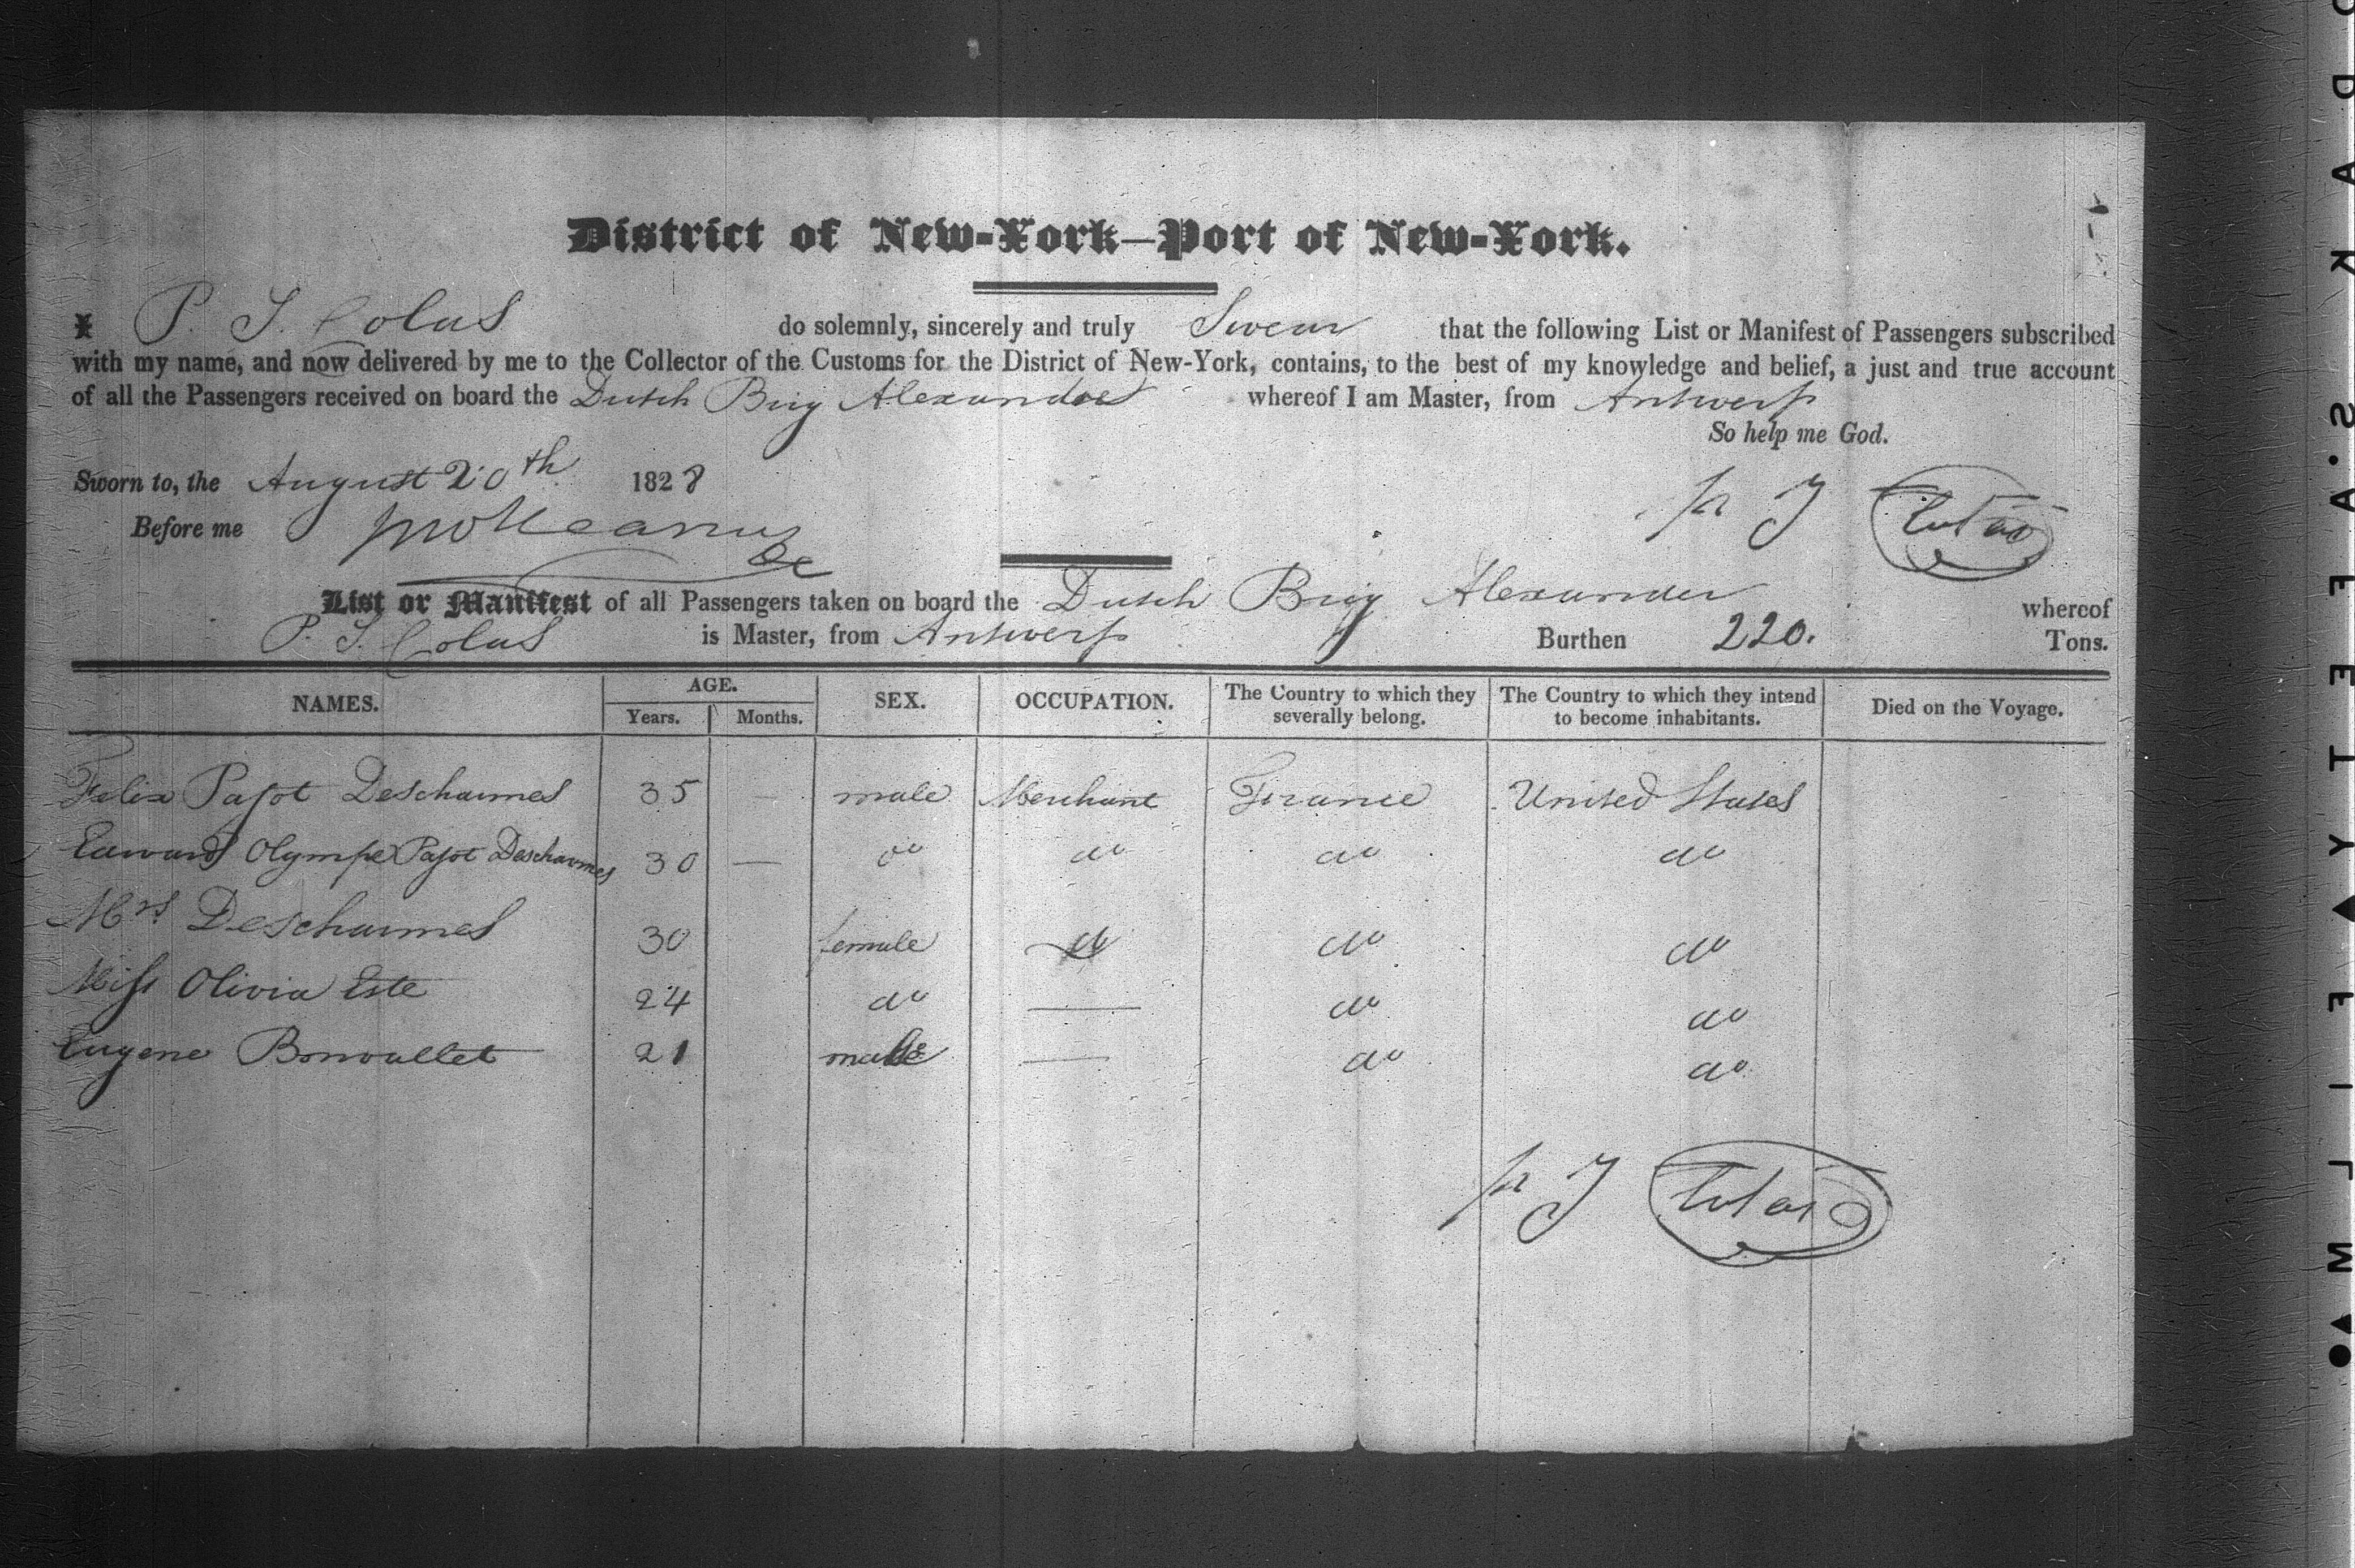 District of New-York—Port of New-York.
I P. J. Colas do solemnly, sincerely and truly Swear that the following List or Manifest of Passengers subscribed
with my name, and now delivered by me to the Collector of the Customs for the District of New-York, contains, to the best of my knowledge and belief, a just and true account
of all the Passengers received on board the Dutch Brig Alexander whereof I am Master, from Antwerp
So help me God.
Sworn to, the August 20th 1828
Before me
List or Manifest of all Passengers taken on board the Dutch Brig Alexander whereof
P. J. Colas is Master, from Antwerp Burthen 220. Tons.
NAMES. AGE. SEX. OCCUPATION. The Country to which they severally belong. The Country to which they intend to become inhabitants. Died on the Voyage.
Years. Months.
Felix Pajot Descharmes 35 — male Merchant France United States
Edward Olympe Pajot Descharmes 30 — do do do do
Mrs Descharmes 30 female do do
Miss Olivia Este 24 do — do do
Eugene Bonvallet 21 male — do do
SAFETY FILM